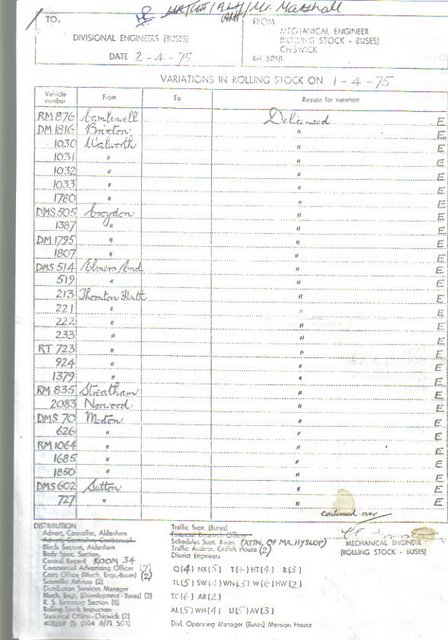 TO: Mr. Marshall FROM
DIVISIONAL ENGINEERS (BUSES) MECHANICAL ENGINEER
(ROLLING STOCK - BUSES)
CHISWICK
DATE 2-4-75
VARIATIONS IN ROLLING STOCK ON 1-4-75
Vehicle number From To Reason for variation
RM 876 Camberwell Delicensed E
DM 1816 Brixton " E
1030 Walworth " E
1031 " " E
1032 " " E
1033 " " E
1780 " " E
DMS 505 Croydon " E
1387 " " E
DM 1795 " " E
1807 " " E
DMS 514 Elmers End " E
519 " " E
213 Thornton Heath " E
221 " " E
222 " " E
233 " " E
RT 723 " " E
924 " " E
1379 " " E
RM 835 Streatham " E
2083 Norwood " E
DMS 70 Merton " E
626 " " E
RM 1064 " " E
1685 " " E
1850 " " E
DMS 602 Sutton " E
727 " " E
continued over
DISTRIBUTION Traffic Supt. (Buses)
Advert. Controller, Aldenham
Schedules Supt. Buses (ATTN. OF MR. HYSLOP) MECHANICAL ENGINEER
Blinds Section, Aldenham Traffic Auditor, Griffith House (2) (ROLLING STOCK - BUSES)
Body Spec. Section, District Engineers
Central Record ROOM 34
Commercial Advertising Office Q(4) NX(5) T(6) HT(4) R(3)
Costs Office (Mech. Engr. Buses) (2)
Scientific Adviser (2) TL(5) SW(4) WN(3) W(6) HW(2)
Distribution Services Manager
Mech. Engr. (Development - Buses) (2) TC(6) AR(2)
R. S. Licensing Section (8)
Rolling Stock Inspector AL(5) WH(4) U(5) AV(3)
Statistical Office - Chiswick (2)
Divl. Operating Manager (Buses) Mansion House